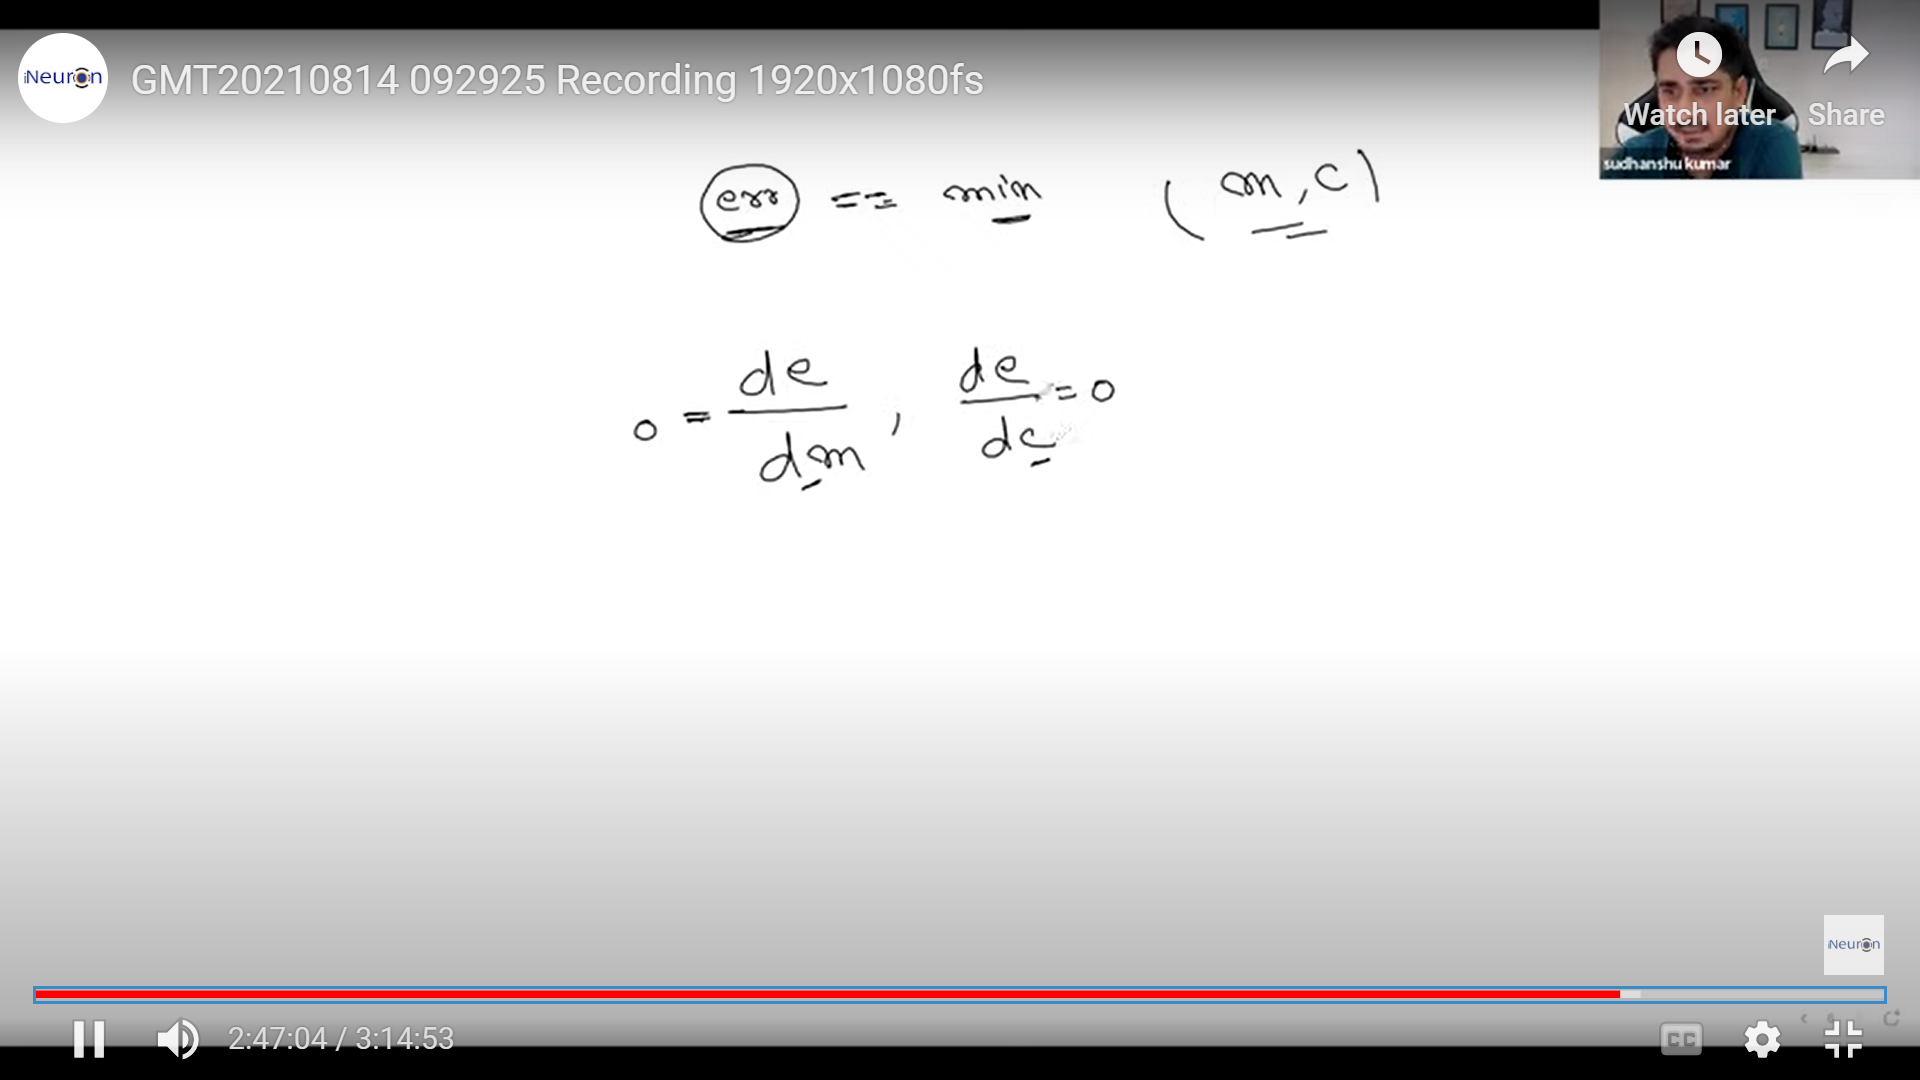 iNeuron
GMT20210814 092925 Recording 1920x1080fs
Watch later
Share
sudhanshu kumar
err == min (m, c)
0 = de/dm , de/dc = 0
iNeuron
2:47:04 / 3:14:53
CC